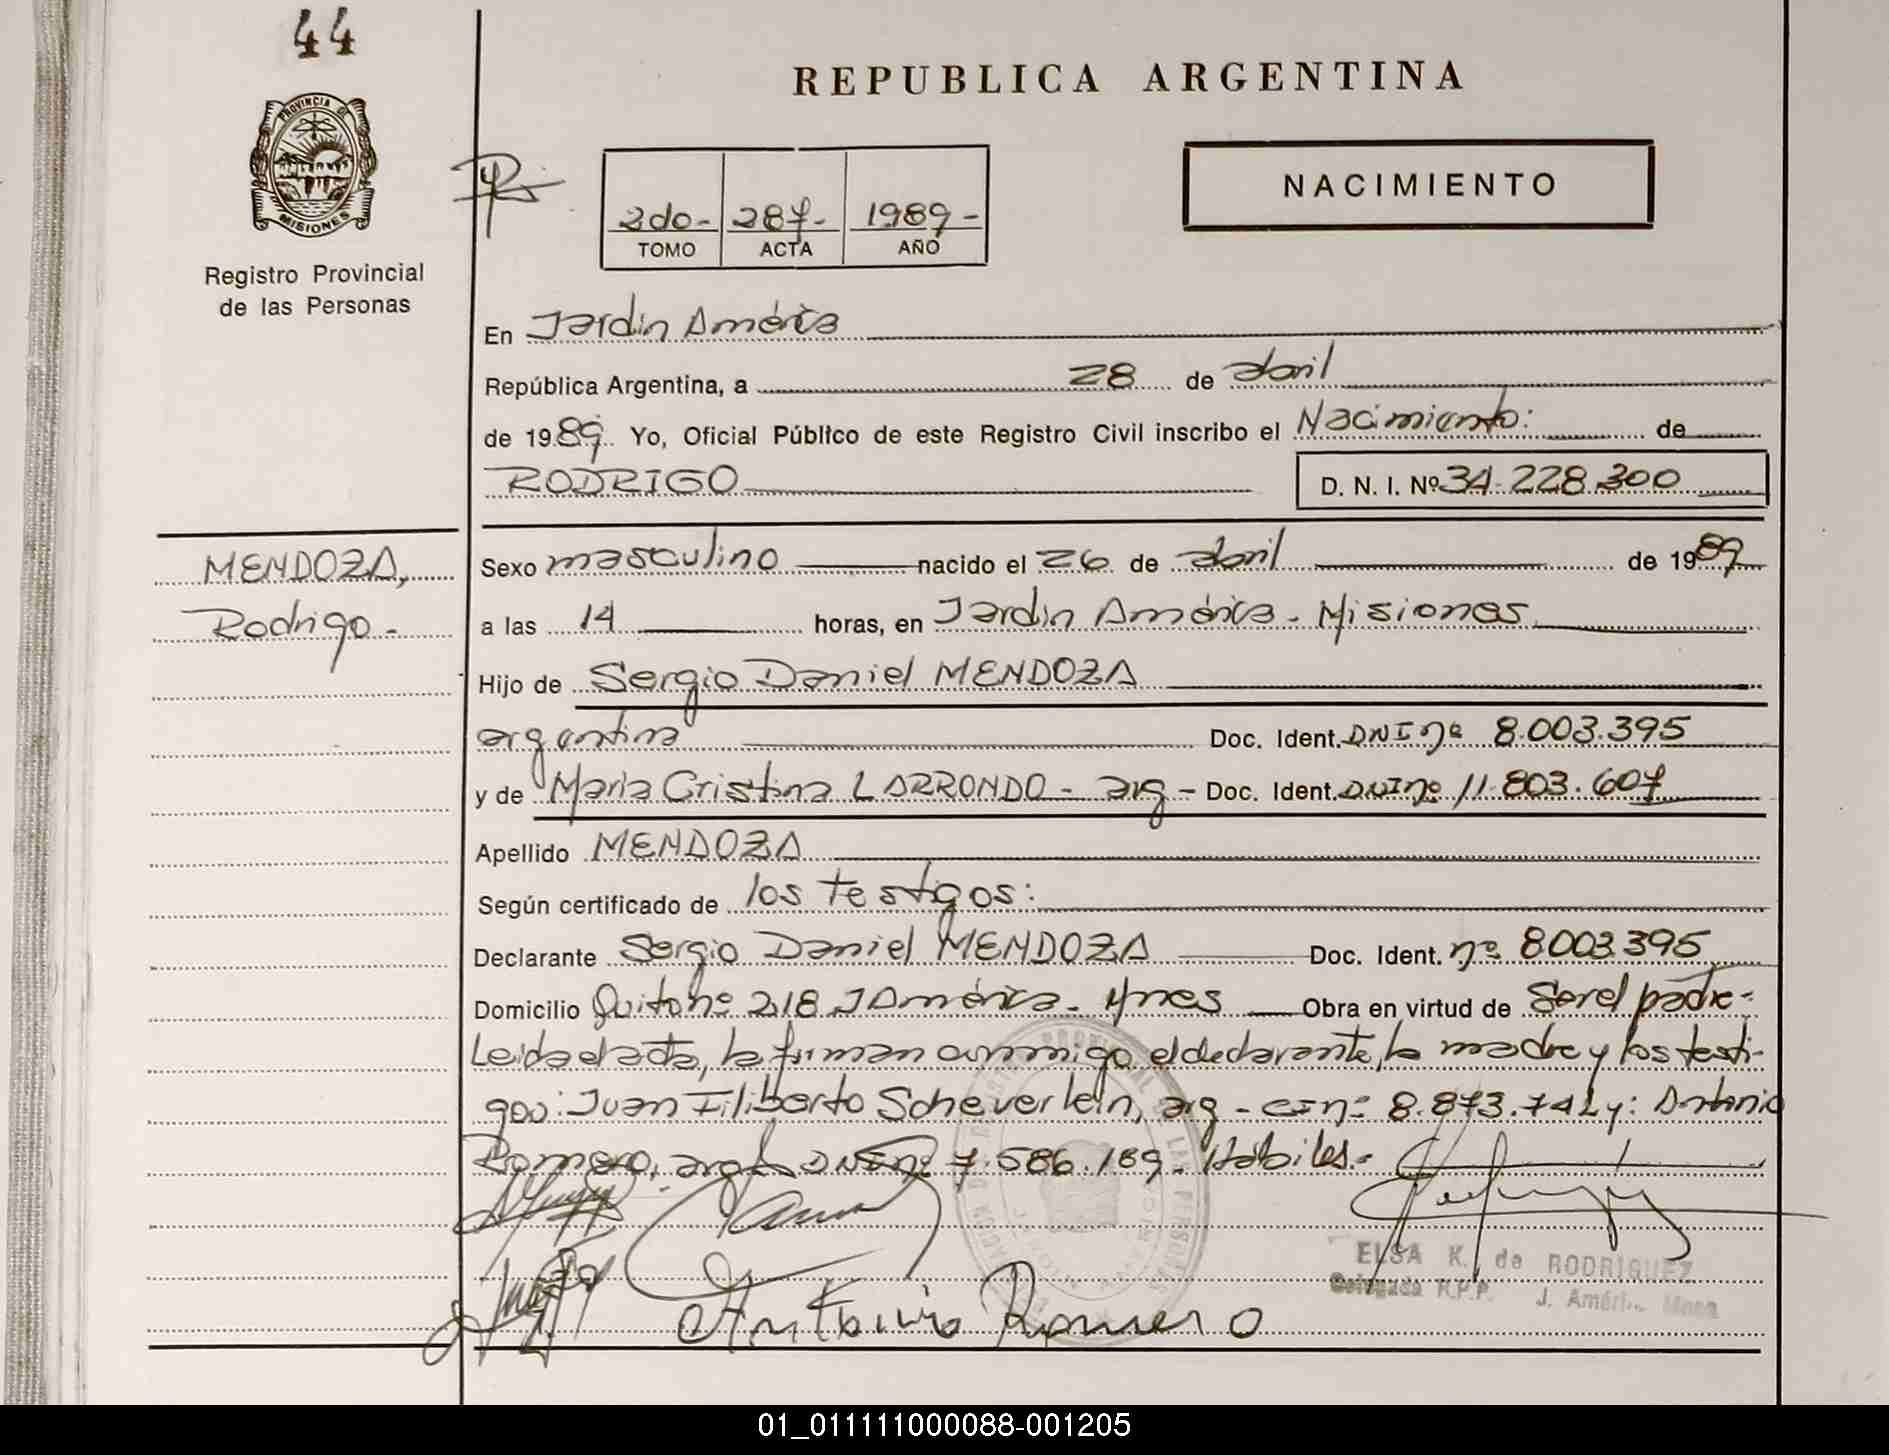 44
REPUBLICA ARGENTINA
PROVINCIA DE
MISIONES
Registro Provincial
de las Personas
2do- 287- 1989-
TOMO ACTA AÑO
NACIMIENTO
En Jardin América
República Argentina, a 28 de abril
de 1989 Yo, Oficial Público de este Registro Civil inscribo el Nacimiento: de
RODRIGO D. N. I. Nº 34.228.300
MENDOZA,
Rodrigo.-
Sexo masculino nacido el 26 de abril de 1989
a las 14 horas, en Jardin América - Misiones
Hijo de Sergio Daniel MENDOZA
argentina Doc. Ident. DNI nº 8.003.395
y de Maria Cristina LARRONDO - arg - Doc. Ident. DNI nº 11.803.607
Apellido MENDOZA
Según certificado de los testigos:
Declarante Sergio Daniel MENDOZA Doc. Ident. nº 8003.395
Domicilio Quito nº 218 J América - Mnes Obra en virtud de Ser el padre-
Leida el acta, la firman conmigo, el declarante, la madre y los testi-
gos: Juan Filiberto Scheverlein, arg - CI nº 8.873.742 y: Antonio
Romero, arg DNI nº 7.586.189 - Hábiles.-
ELSA K. de RODRIGUEZ
Delegada R.P.P. J. Améri. Mnes
Antonio Romero
01_011111000088-001205